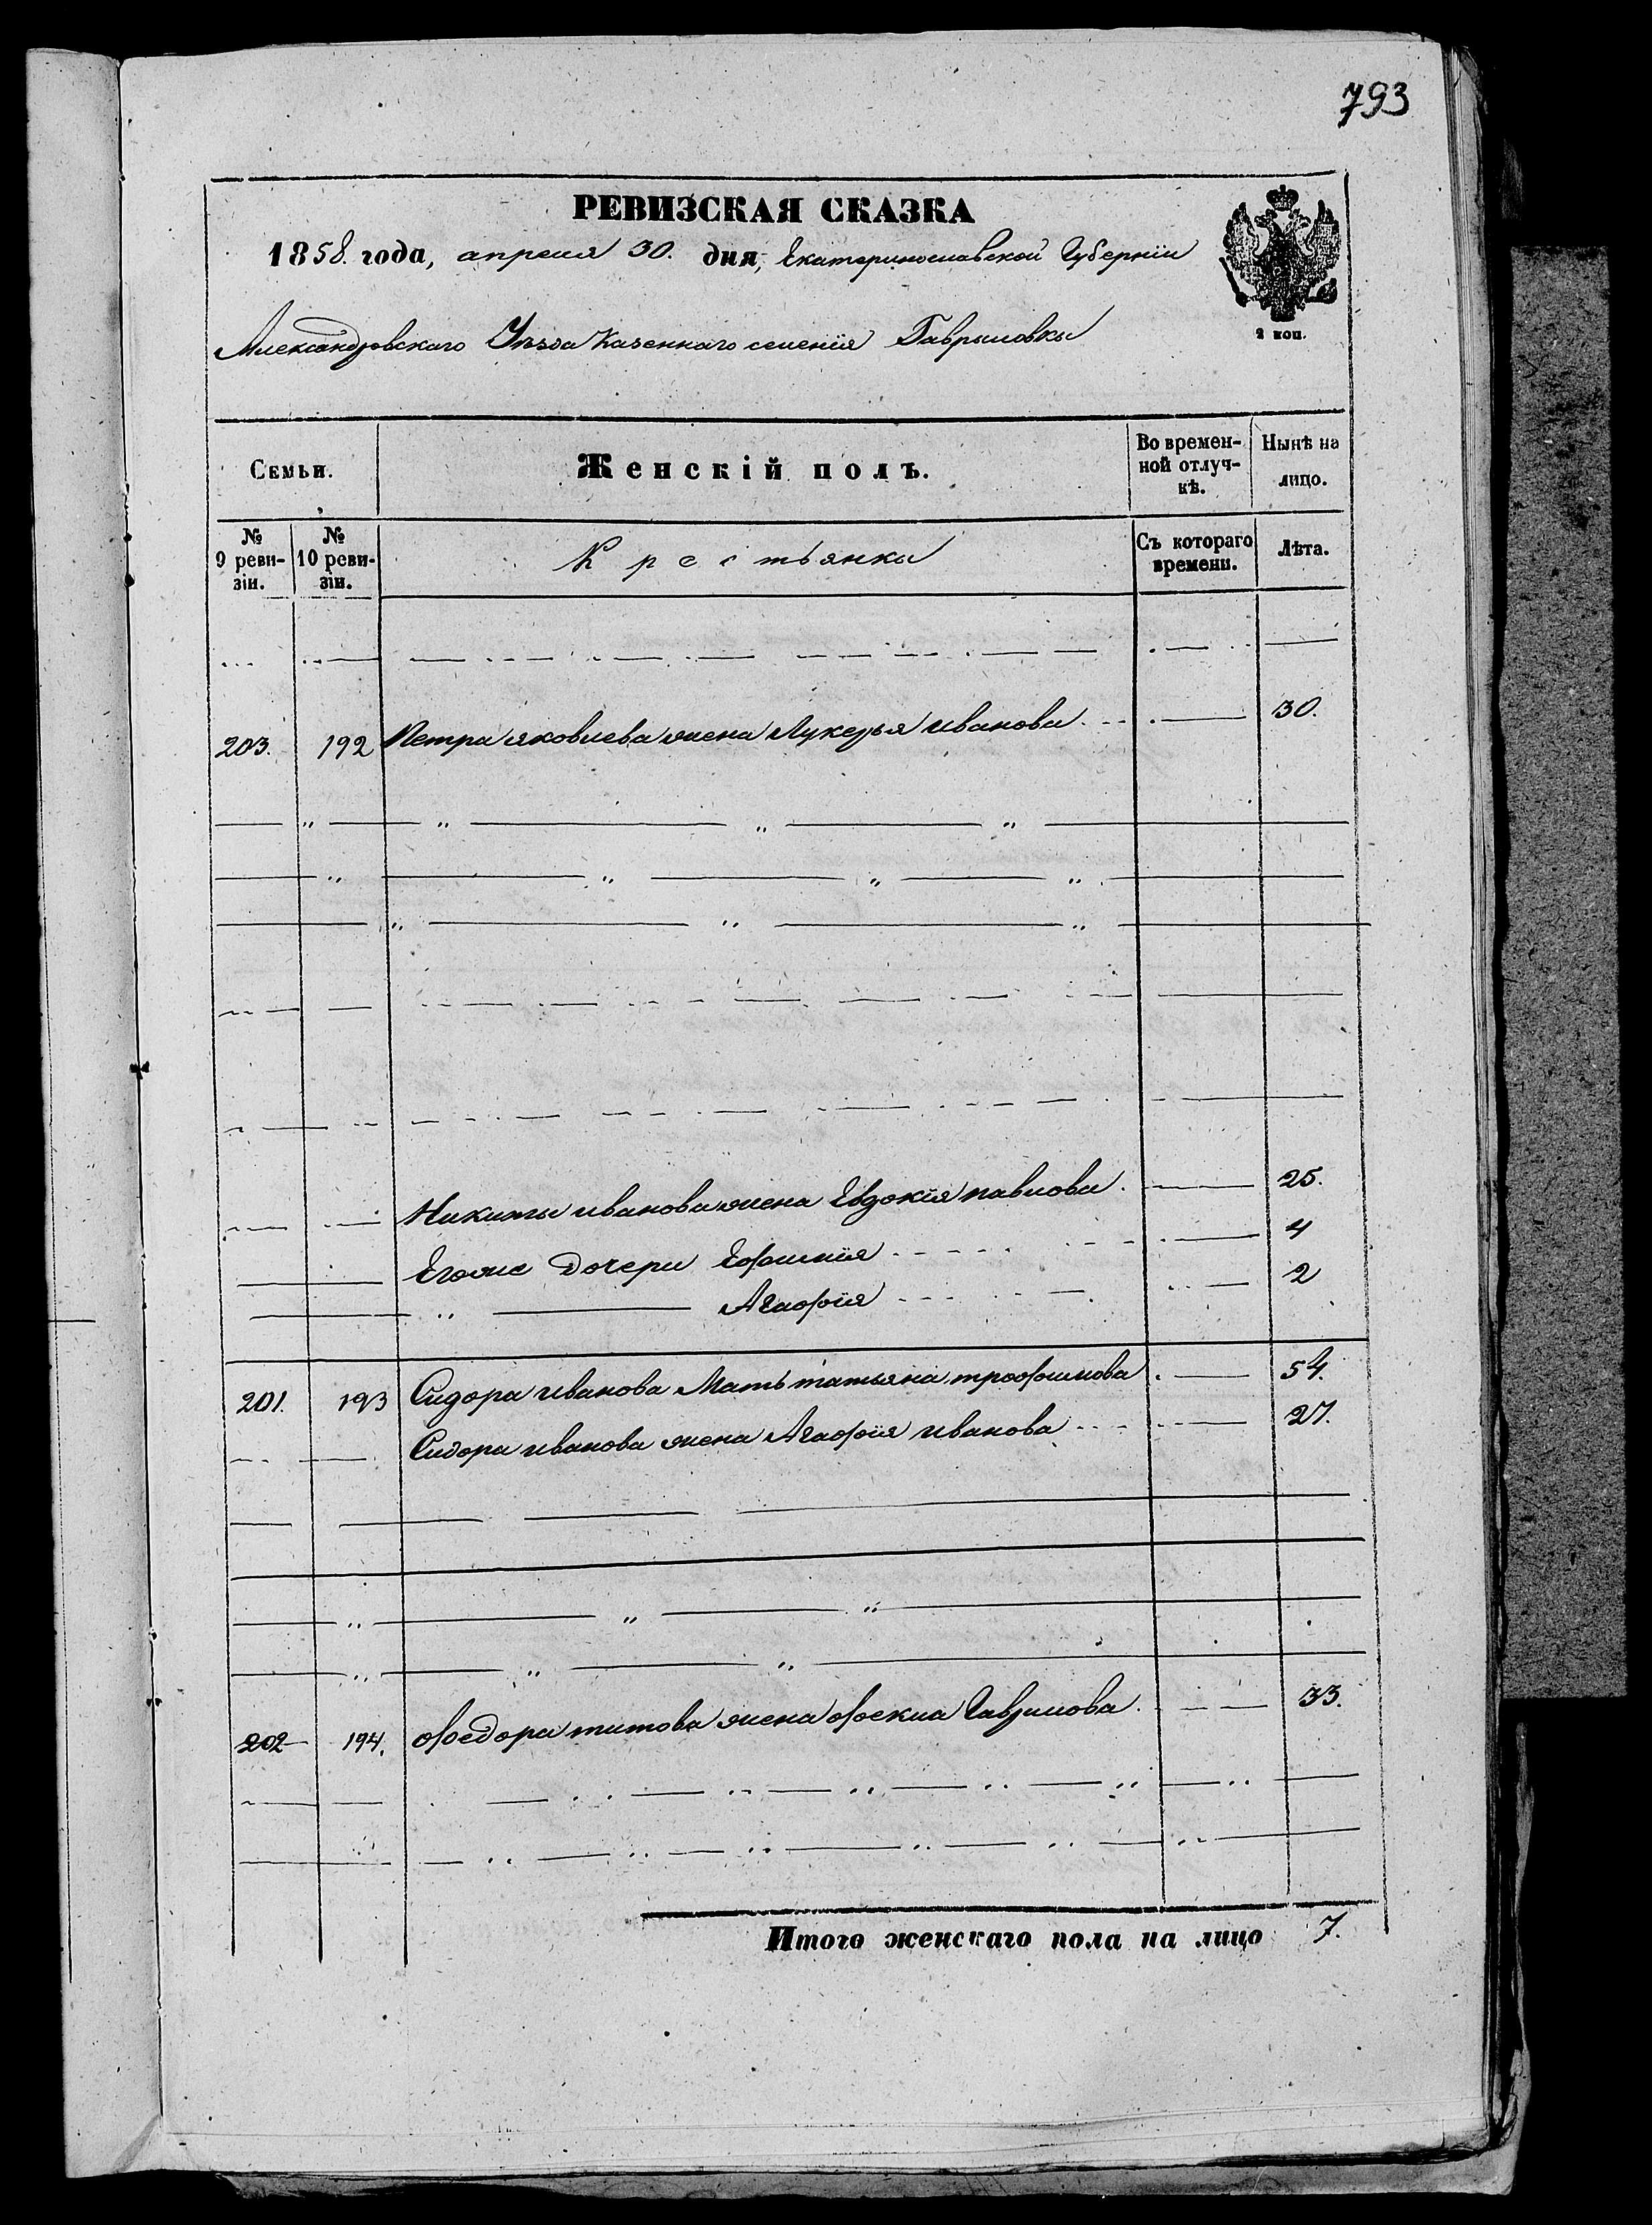 793
РЕВИЗСКАЯ СКАЗКА
1858. года, апреля 30. дня, Екатеринославской Губерніи
Александровскаго Уѣзда Казеннаго селенія Гаврыловки
2 коп.
Семьи. Женскій полъ. Во временной отлучкѣ. Нынѣ на лицо.
№ 9 ревизіи. № 10 ревизіи. Крестьянки Съ котораго времени. Лѣта.
203. 192 Петра яковлева жена Лукерья иванова 30.
Никиты иванова жена Евдокія павлова 25.
Егоже дочери Ефимія 4
" Агафія 2
201. 193 Сидора иванова Мать татьяна трофимова 54.
Сидора иванова жена Агафія иванова 27.
202 194. Федора титова жена фекла Гаврилова 33.
Итого женскаго пола на лицо 7.